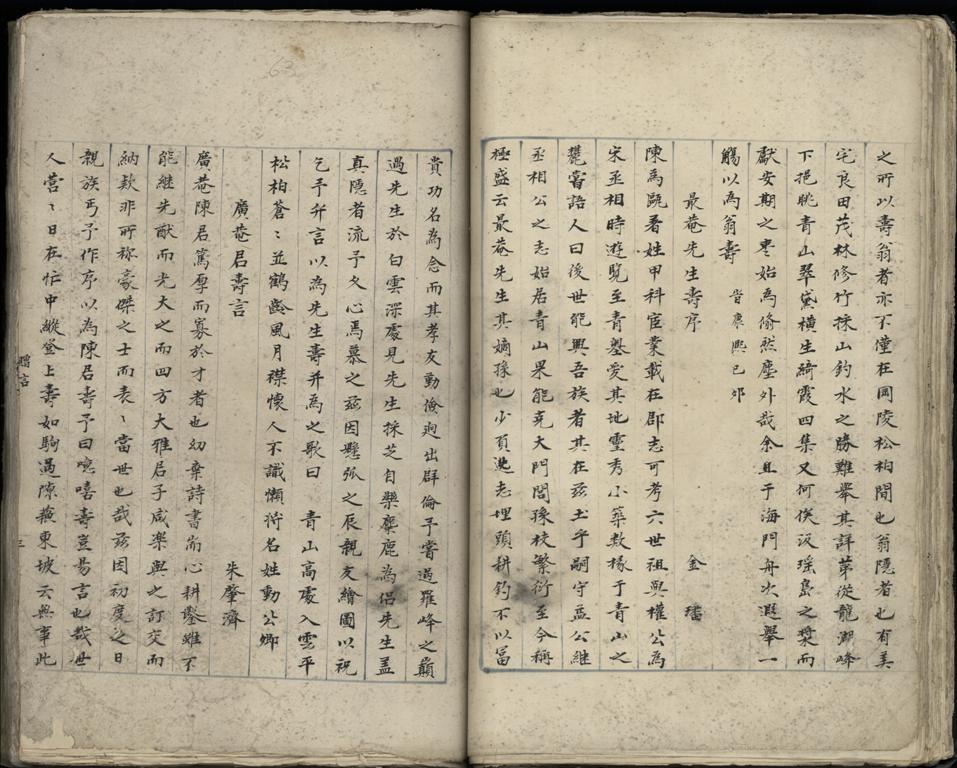 之所以壽翁者亦不僅在岡陵松柏間也翁隱者也有美
宅良田茂林修竹採山釣水之勝難舉其詳苐從龍湖峰
下挹眺青山翠黛橫生綺霞四集又何俟汲瑶島之漿而
獻安期之棗始為翛然塵外哉余且于海門舟次遐舉一
觴以為翁壽 旹康熙己卯
最菴先生壽序 金璠
陳為甌著姓甲科宦業載在郡志可考六世祖與權公為
宋丞相時遊覽至青嶴愛其地靈秀小築数椽于青山之
麓嘗語人曰後世能興吾族者其在茲土乎嗣守益公継
丞相公之志始居青山果能克大門閭孫枝繁衍至今稱
極盛云最菴先生其嫡孫也少負逸志埋頭耕釣不以冨
貴功名為念而其孝友勤儉迥出群倫予嘗過羅峰之巔
遇先生於白雲深處見先生採芝自樂麋鹿為侶先生盖
真隱者流予久心焉慕之茲因懸弧之辰親友繪圖以祝
乞予弁言以為先生壽并為之歌曰 青山高處入雲平
松柏蒼〻並鶴齡風月襟懷人不識懶將名姓動公卿
廣菴君壽言 朱肇濟
廣菴陳君篤厚而寡於才者也幼棄詩書而心耕鑿雖不
能継先猷而光大之而四方大雅君子咸樂與之訂交而
納欵非所称豪傑之士而表〻當世也哉茲因初度之日
親族丐予作序以為陳君壽予曰噫嘻壽豈易言也哉世
人營〻日在忙中縱登上壽如駒過隙蘓東坡云無事此
贈言
三
63